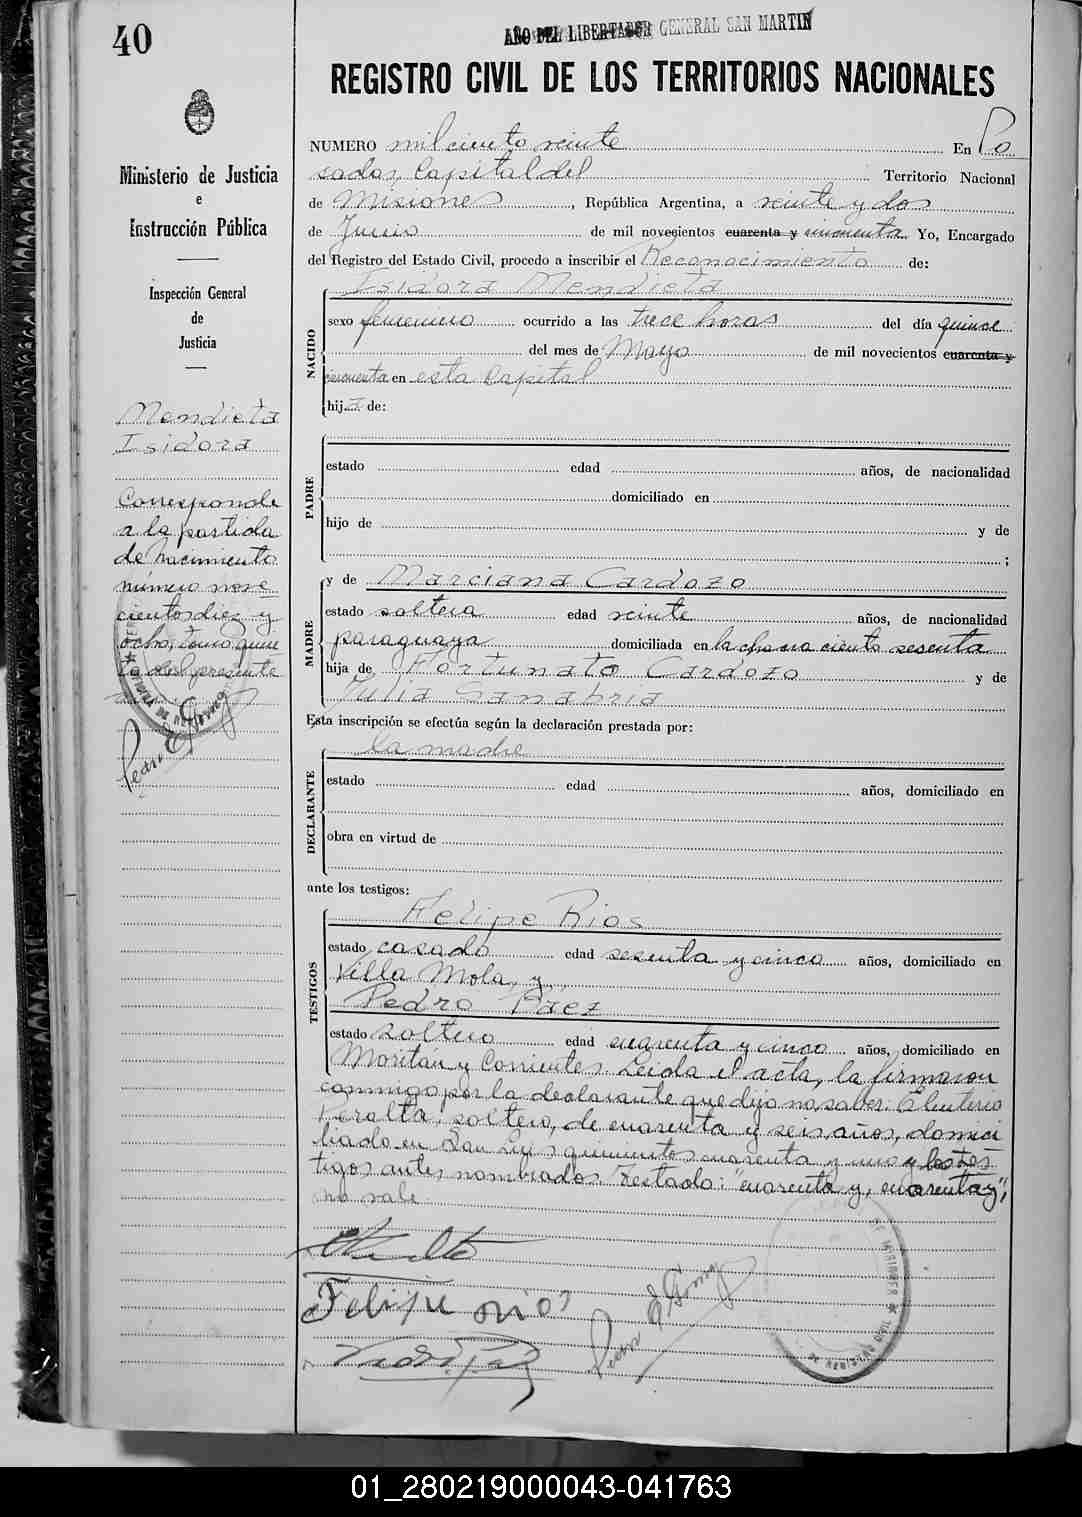 40
AÑO DEL LIBERTADOR GENERAL SAN MARTIN
REGISTRO CIVIL DE LOS TERRITORIOS NACIONALES
Ministerio de Justicia
e
Instrucción Pública
Inspección General
de
Justicia
Mendieta
Isidora
Corresponde
a la partida
de nacimiento
número nove
cientos diez y
ocho, tomo quin
to del presente
NUMERO mil ciento veinte En Po
sadas, Capital del Territorio Nacional
de Misiones, República Argentina, a veinte y dos
de Junio de mil novecientos cuarenta y cincuenta Yo, Encargado
del Registro del Estado Civil, procedo a inscribir el Reconocimiento de:
NACIDO
Isidora Mendieta
sexo femenino ocurrido a las trece horas del día quince
del mes de Mayo de mil novecientos cuarenta y
cincuenta en esta Capital
hija de:
PADRE
estado edad años, de nacionalidad
domiciliado en
hijo de y de
;
MADRE
y de Marciana Cardozo
estado soltera edad veinte años, de nacionalidad
paraguaya domiciliada en la chacra ciento sesenta
hija de Fortunato Cardozo y de
Julia Sanabria
Esta inscripción se efectúa según la declaración prestada por:
DECLARANTE
la madre
estado edad años, domiciliado en
obra en virtud de
ante los testigos:
TESTIGOS
Felipe Rios
estado casado edad sesenta y cinco años, domiciliado en
Villa Mola, y
Pedro Paez
estado soltero edad cuarenta y cinco años, domiciliado en
y Corrientes. Leida el acta, la firmaron
conmigo por la declarante que dijo no saber: Eleuterio
Peralta, soltero, de cuarenta y seis años, domici
liado en San Luis quinientos cuarenta y uno y los tes
tigos antes nombrados Testado: "cuarenta y, cuarenta y",
no vale
Felipe rios
01_280219000043-041763